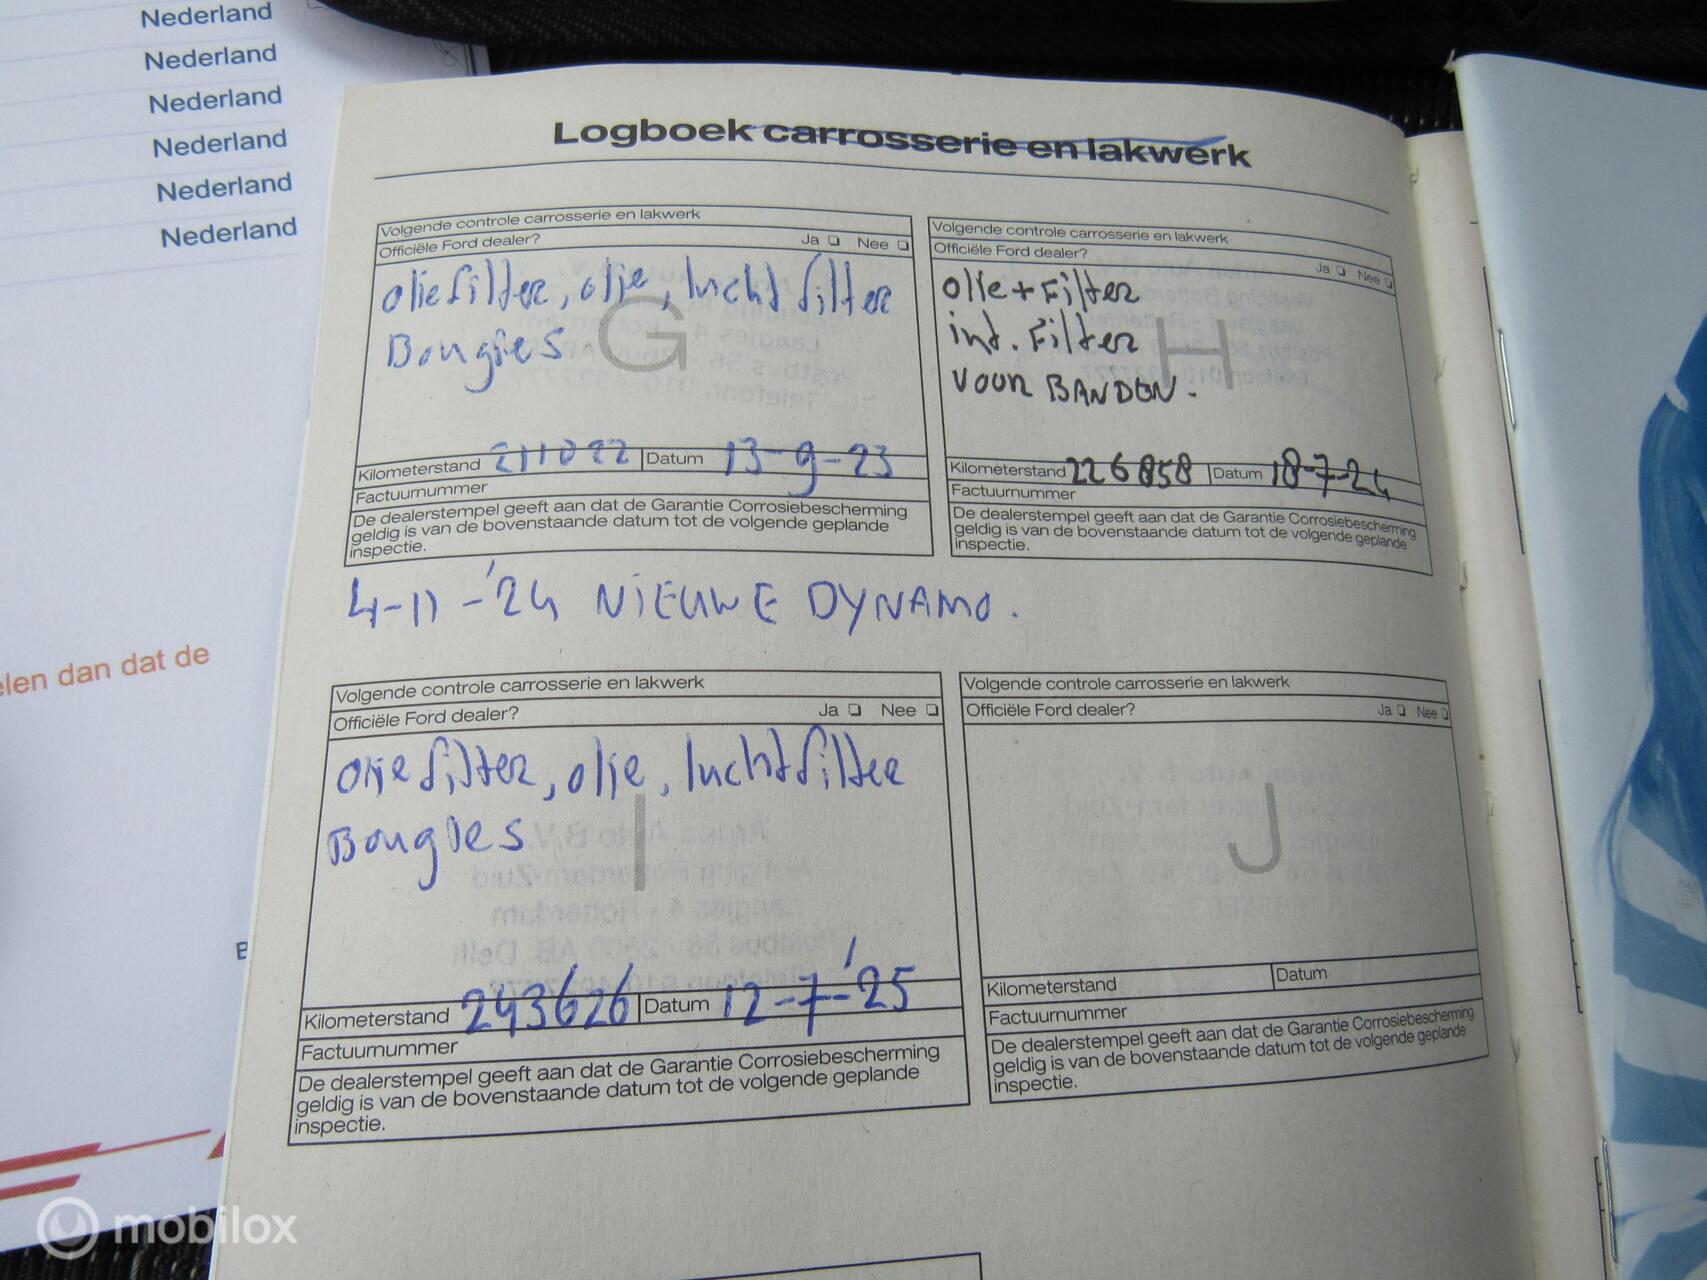 Nederland
Nederland
Nederland
Nederland
Nederland
Nederland
elen dan dat de
Logboek carrosserie en lakwerk
Volgende controle carrosserie en lakwerk
Officiële Ford dealer? Ja Nee
oliefilter, olie, luchtfilter
Bougies
G
Kilometerstand 211022 Datum 13-9-23
Factuurnummer
De dealerstempel geeft aan dat de Garantie Corrosiebescherming
geldig is van de bovenstaande datum tot de volgende geplande
inspectie.
Volgende controle carrosserie en lakwerk
Officiële Ford dealer? Ja Nee
olie + Filter
int. Filter
VOOR BANDEN.
H
Kilometerstand 226858 Datum 18-7-24
Factuurnummer
De dealerstempel geeft aan dat de Garantie Corrosiebescherming
geldig is van de bovenstaande datum tot de volgende geplande
inspectie.
4-11-'24 NIEUWE DYNAMO.
Volgende controle carrosserie en lakwerk
Officiële Ford dealer? Ja Nee
oliefilter, olie, luchtfilter
Bougies
I
Kilometerstand 243626 Datum 12-7-'25
Factuurnummer
De dealerstempel geeft aan dat de Garantie Corrosiebescherming
geldig is van de bovenstaande datum tot de volgende geplande
inspectie.
Volgende controle carrosserie en lakwerk
Officiële Ford dealer? Ja Nee
J
Kilometerstand Datum
Factuurnummer
De dealerstempel geeft aan dat de Garantie Corrosiebescherming
geldig is van de bovenstaande datum tot de volgende geplande
inspectie.
mobilox